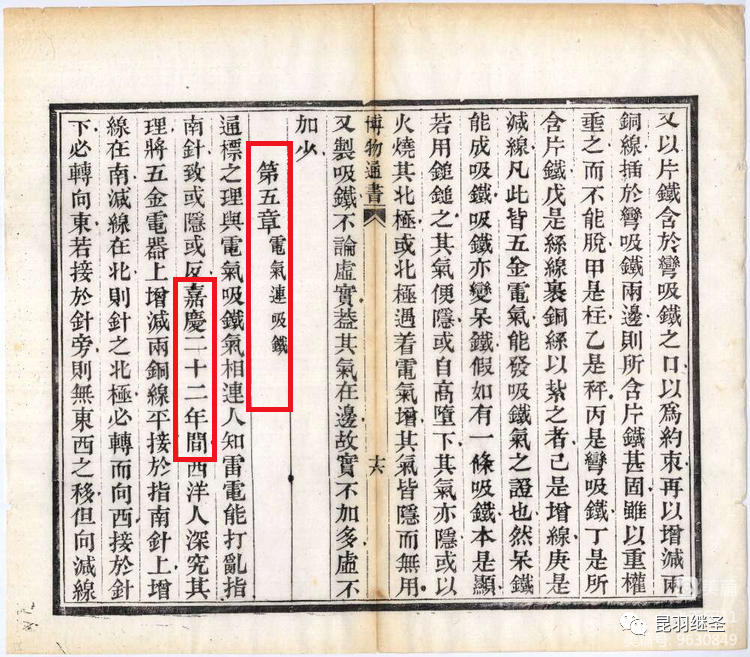 又以片鐵含於彎吸鐵之口以爲約束再以增減兩
銅線插於彎吸鐵兩邊則所含片鐵甚固雖以重權
垂之而不能脫甲是柱乙是秤丙是彎吸鐵丁是所
含片鐵戊是絲線裹銅絲以紮之者己是增線庚是
減線凡此皆五金電氣能發吸鐵氣之證也然呆鐵
能成吸鐵吸鐵亦變呆鐵假如有一條吸鐵本是顯
若用鎚鎚之其氣便隱或自高墮下其氣亦隱或以
火燒其北極或北極遇着電氣增其氣皆隱而無用
博物通書
十六
又製吸鐵不論虛實葢其氣在邊故實不加多虛不
加少
第五章 電氣連吸鐵
通標之理與電氣吸鐵氣相連人知雷電能打亂指
南針致或隱或反嘉慶二十二年間西洋人深究其
理將五金電器上增減兩銅線平接於指南針上增
線在南減線在北則針之北極必轉而向西接於針
下必轉向東若接於針旁則無東西之移但向減線
昆羽继圣
9630849